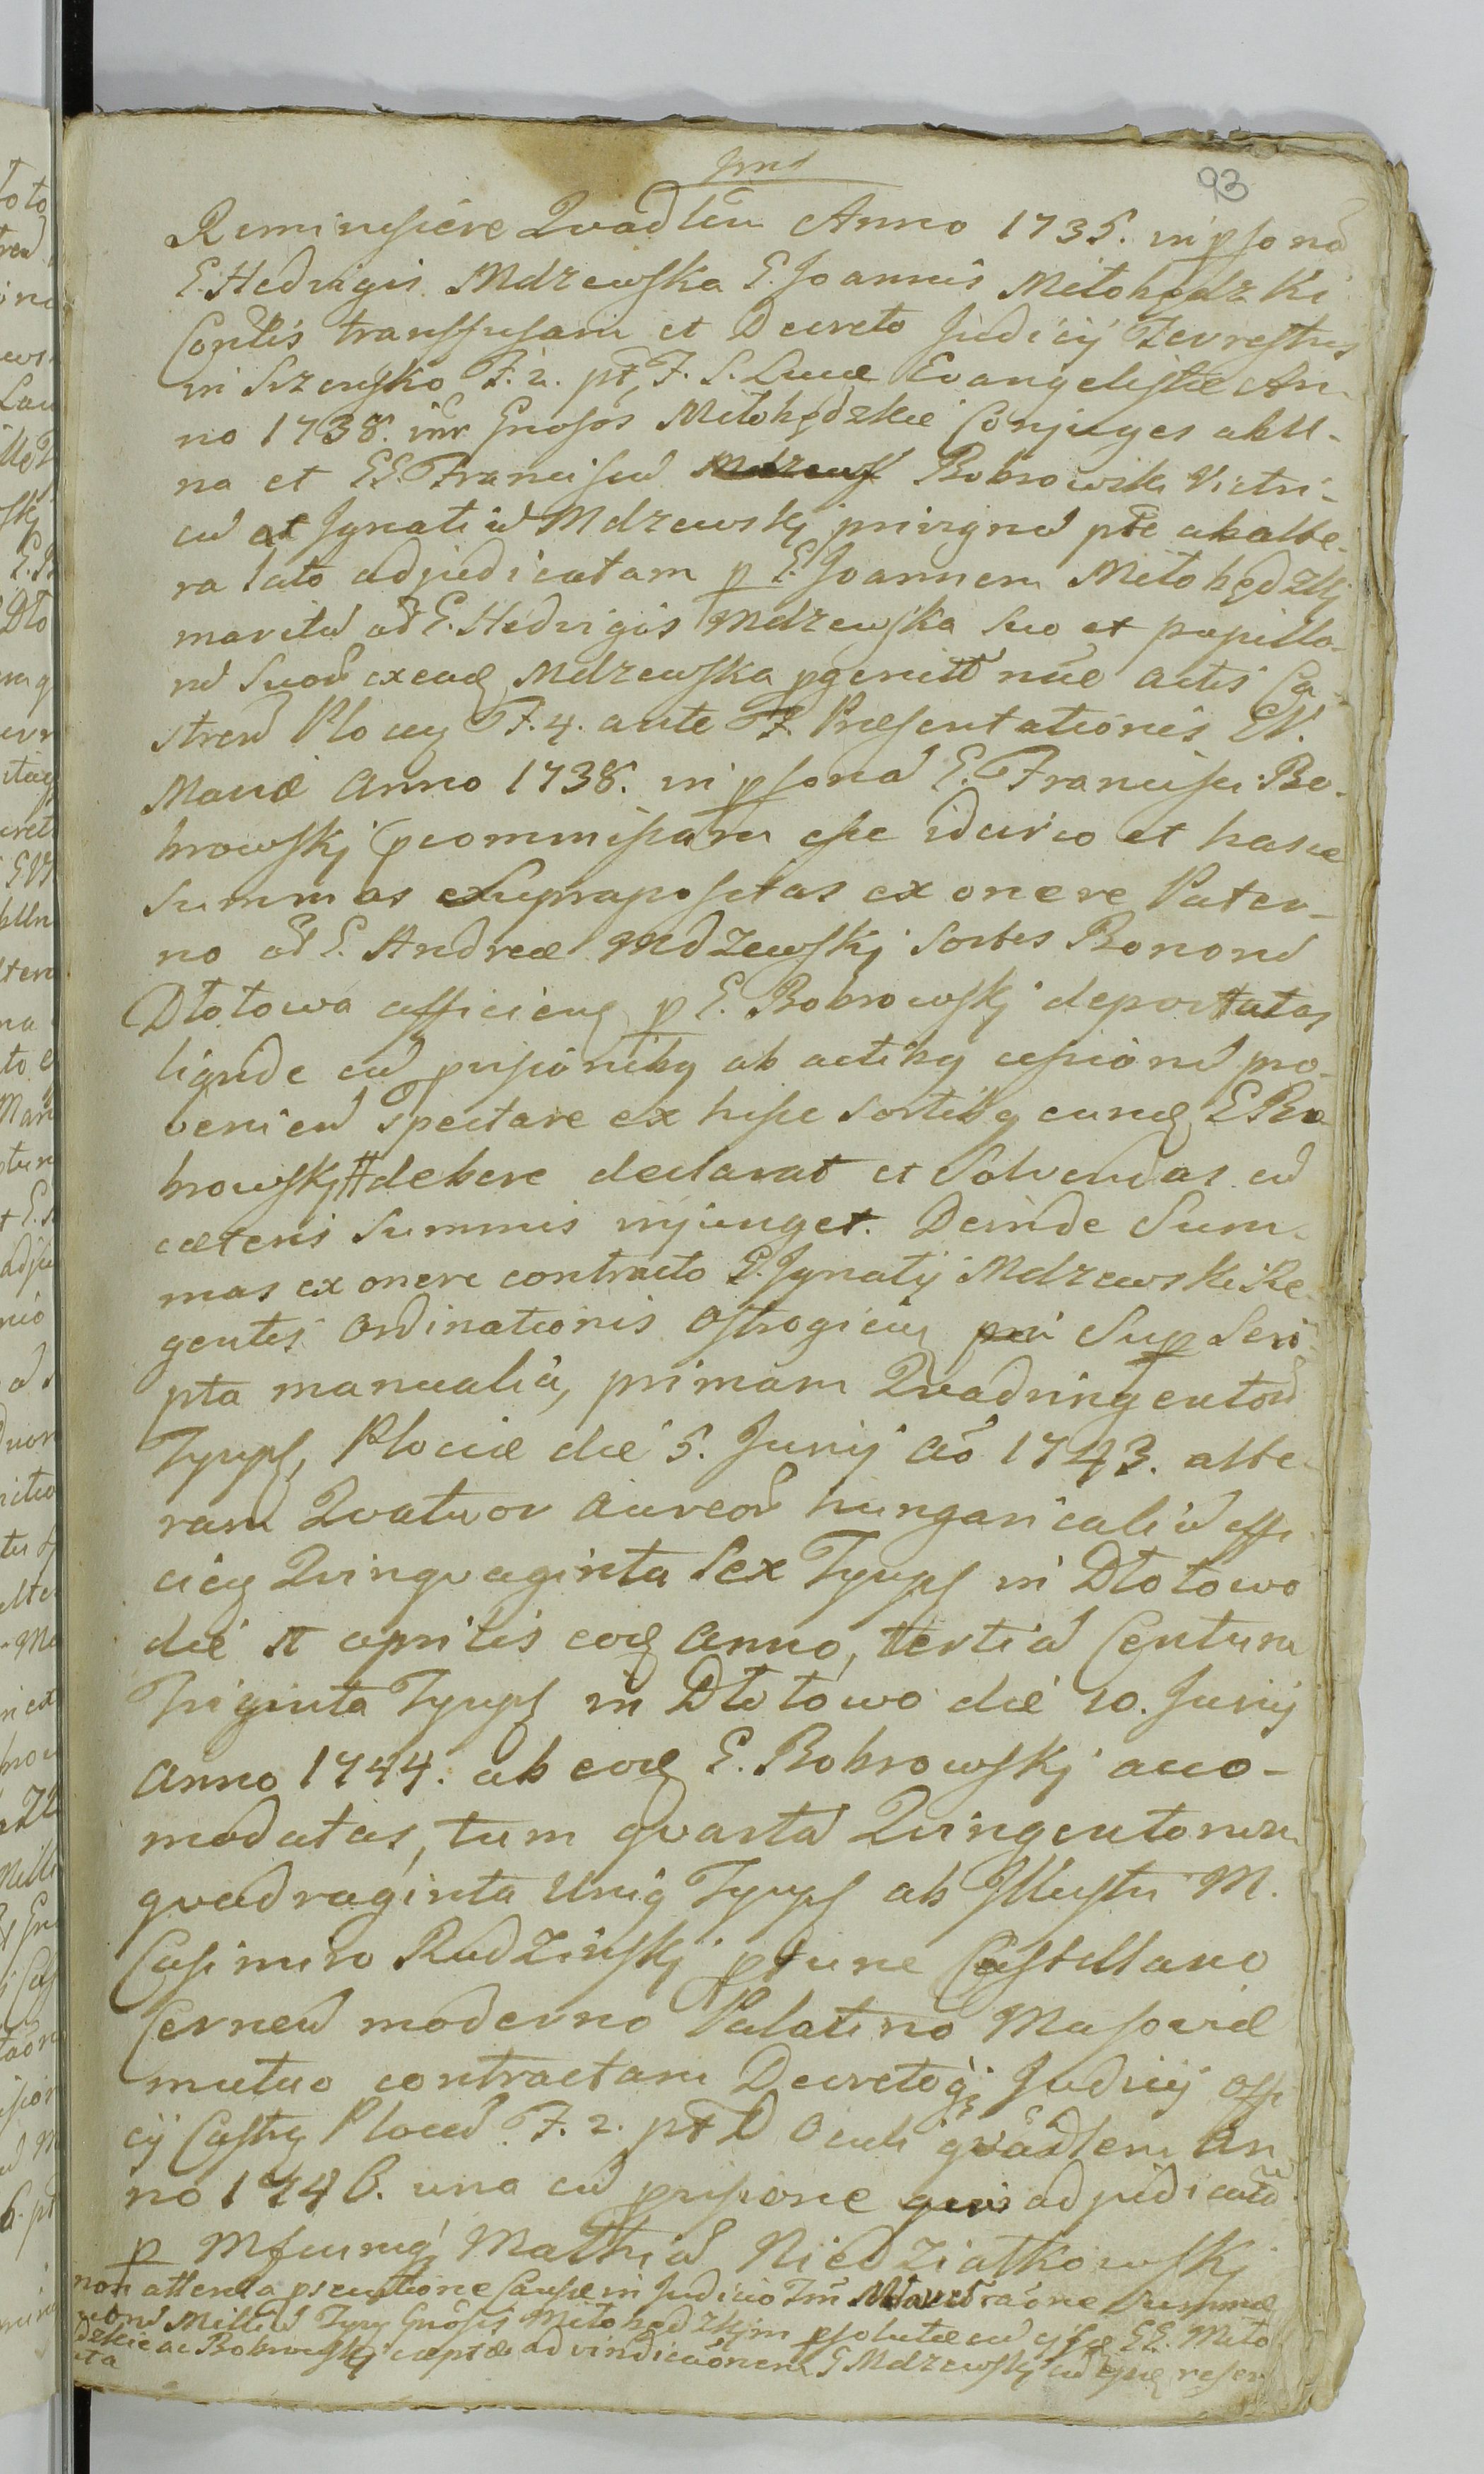 93
Reminiscere Quadlem Anno 1735. in psona
E. Hedvigis Mdzewska E. Joannis Miłohędzki
Contlis transfusam et Decreto Judicij Terrestris
in Szrensko F. 2. pt F. S. Lucæ Evangelistæ An-
no 1738. intr Gnosos Miłohędzkie Conjuges ab U-
na et EE. Franciscū Bobrowski Vitri-
cū et Ignatiū Mdzewskj privignū pte ab alte-
ra lato adjudicatam p E. Joannem Miłohędzkj
maritū od E. Hedvigis Mdzewska suo et pupillo-
rū suorū ex eadq Mdzewska pgenitorū nōe actis Ca-
strens Plocenq F. 4. ante F. Præsentationis B.V.
Mariæ Anno 1738. in psona E. Francisci Bo-
browskj pcommissam esse idcirco et hasce
summas suprapositas ex onere Pater-
no od E. Andreæ Mdzewskj sortes Bonorū
Dłotowa afficienq p E. Bobrowskj deportatas
liquide cū pvisionibq ab actibq cessionū pro-
venien spectare ex hisce sortibq eundq E Bo-
browskj # debere declarat et solvendas cū
cæteris summis injunget. Deinde Sum-
mas ex onere contracto E. Ignatij Mdzewski Re-
gentis Ordinationis Ostrogienq sup scri-
pta manualia, primam Quadringentorū
Tympf, Plociæ die 5. Junij Ao 1743. alte-
ram Quatuor aureorū hungaricaliū effi-
cienq Quinquaginta Sex Tympf in Dłotowo
die aprilis eodq Anno, tertiā Centum
Triginta Tympf in Dłotowo die 10. Junij
Anno 1744. ab eodq E. Bobrowskj acco-
modatas, tum quartā Quingentorum
quadraginta Uniq Tympf ab Illustri M.
Casimiro Rudzinskj ptunc Castellano
Cernen moderno Palatino Masoviæ
mutuo contractam Decretoq Judicij Offi-
cij Castrq Plocen F. 2. pt D Oculi quadlem An-
no 1746. una cū pvisione adjudicatā
p Mfcumq Mathiā Niedziałkowskj
non attenta psecutione Causæ in Judicio Trni summæ
Milliū Tymp Gnosis Miłohędzkim psolutæ cū ejsq EE. Miło
dzkie ac Bobrowskj cæptæ ad vindicaōnem G Mdzewskj cū ejsq reser